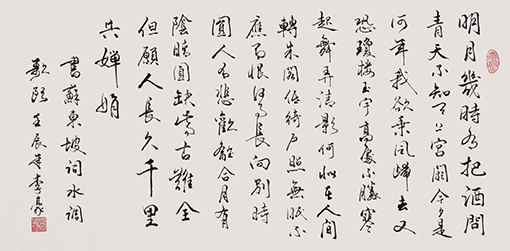 明月幾時有把酒問
青天不知天上宮闕今夕是
何年我欲乘風歸去又
恐瓊樓玉宇高處不勝寒
起舞弄清影何似在人間
轉朱閣低綺戶照無眠不
應有恨何事長向別時
圓人有悲歡離合月有
陰晴圓缺此事古難全
但願人長久千里
共嬋娟
書蘇東坡詞水調
歌頭 壬辰 李